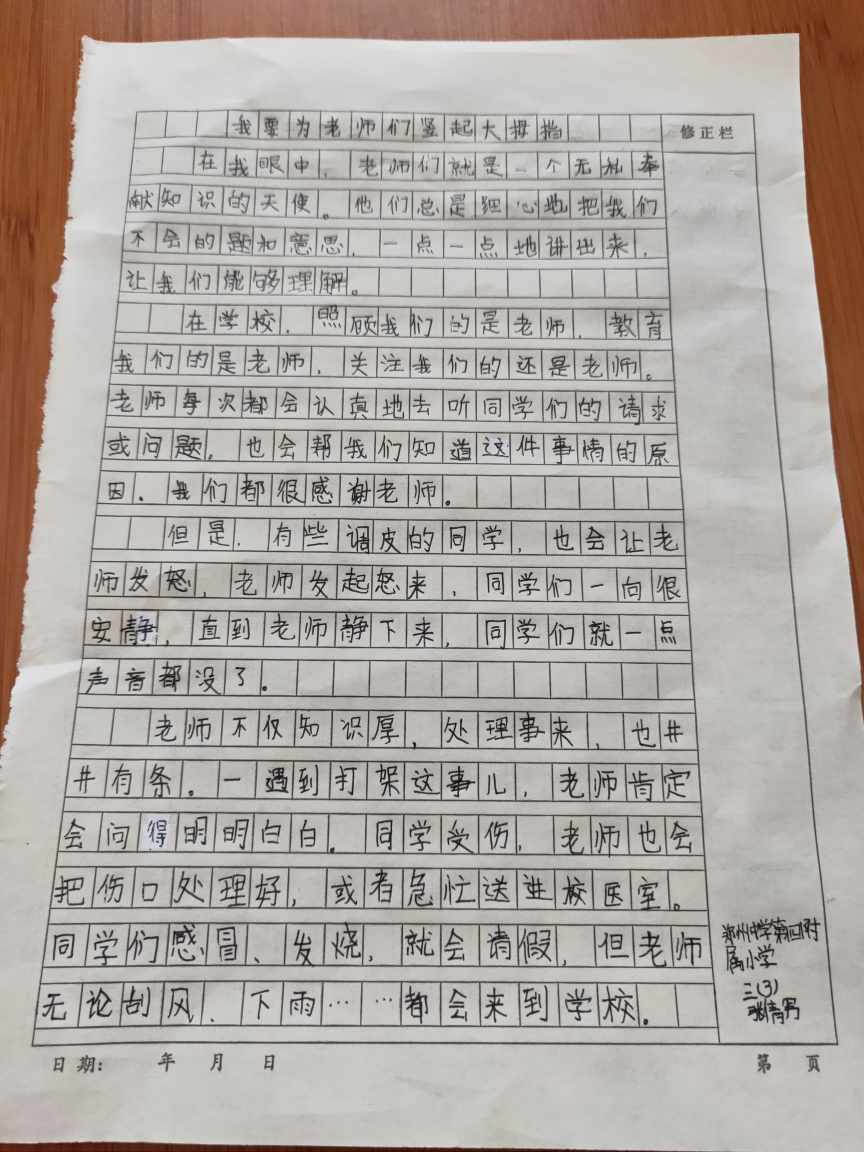 我要为老师们竖起大拇指
修正栏
在我眼中，老师们就是一个无私奉
献知识的天使。他们总是细心地把我们
不会的题和意思，一点一点地讲出来，
让我们能够理解。
在学校，照顾我们的是老师，教育
我们的是老师，关注我们的还是老师。
老师每次都会认真地去听同学们的请求
或问题，也会帮我们知道这件事情的原
因，我们都很感谢老师。
但是，有些调皮的同学，也会让老
师发怒，老师发起怒来，同学们一向很
安静，直到老师静下来，同学们就一点
声音都没了。
老师不仅知识厚，处理事来，也井
井有条。一遇到打架这事儿，老师肯定
会问得明明白白。同学受伤，老师也会
把伤口处理好，或者急忙送进校医室。
同学们感冒、发烧，就会请假，但老师
无论刮风、下雨……都会来到学校。
郑州中学第四附
属小学
三(3)
日期： 年 月 日
第 页